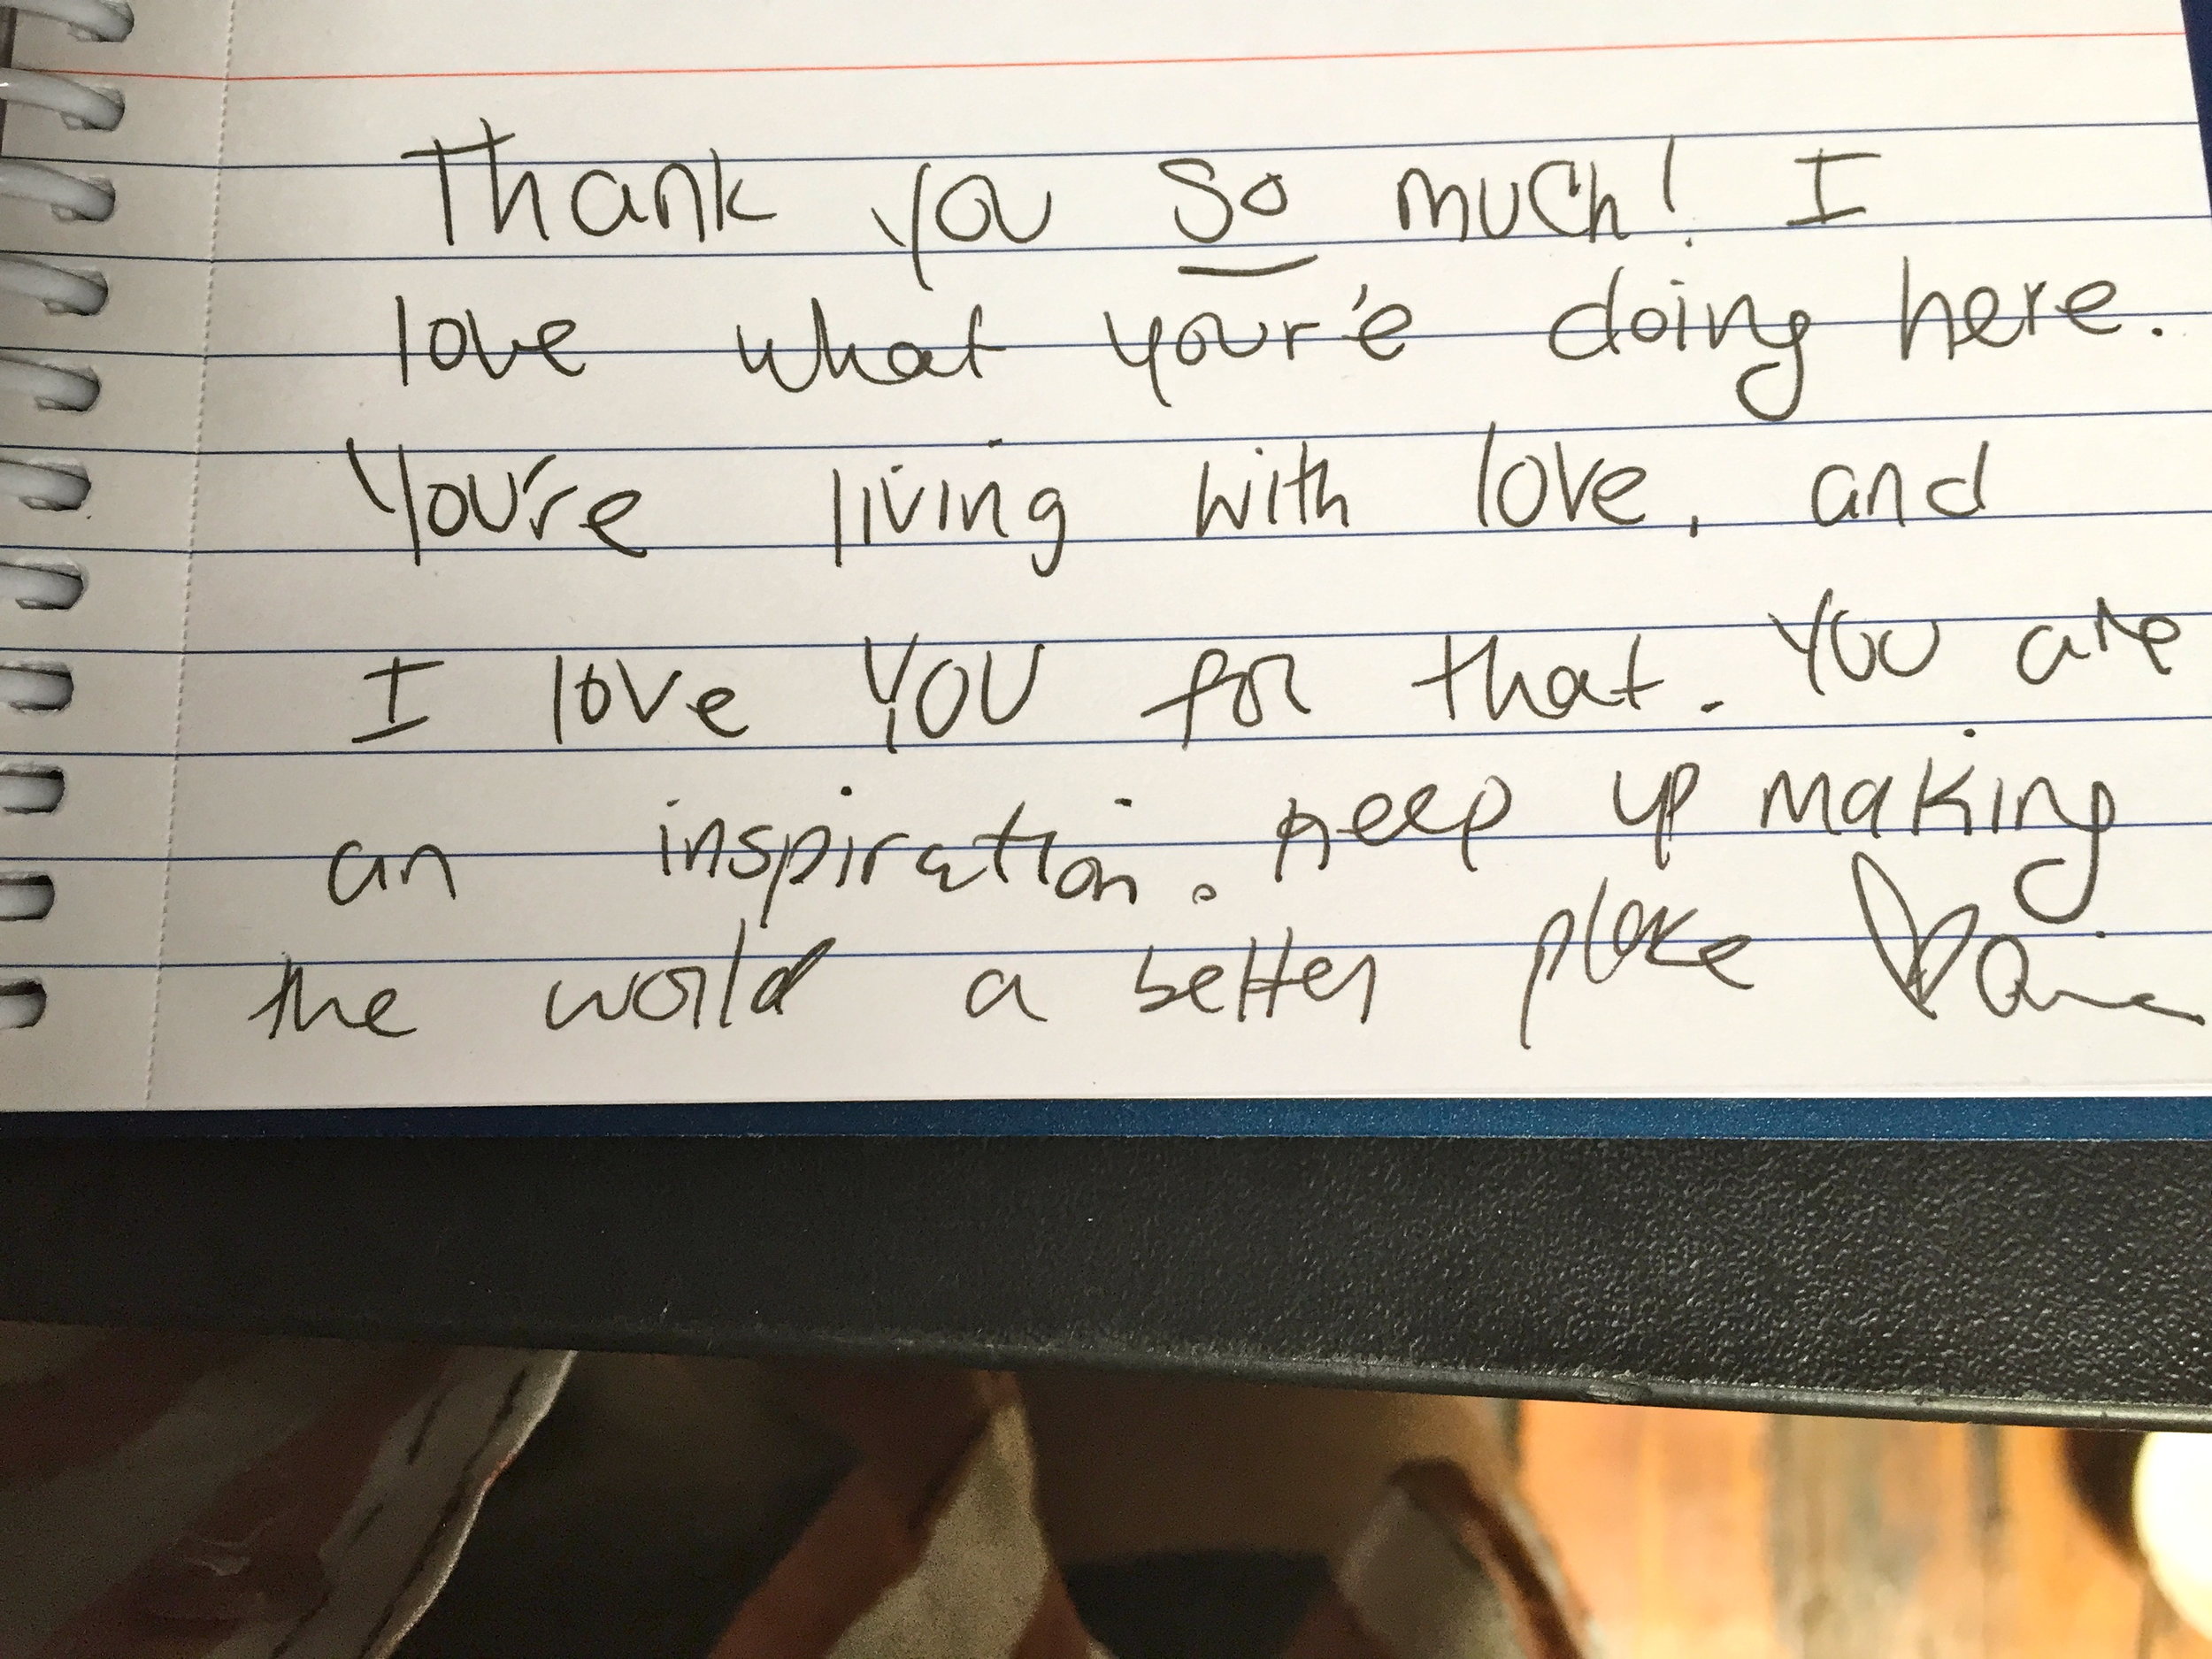 Thank you so much! I
love what your'e doing here.
You're living with love, and
I love YOU for that. You are
an inspiration. Keep up making
the world a better place